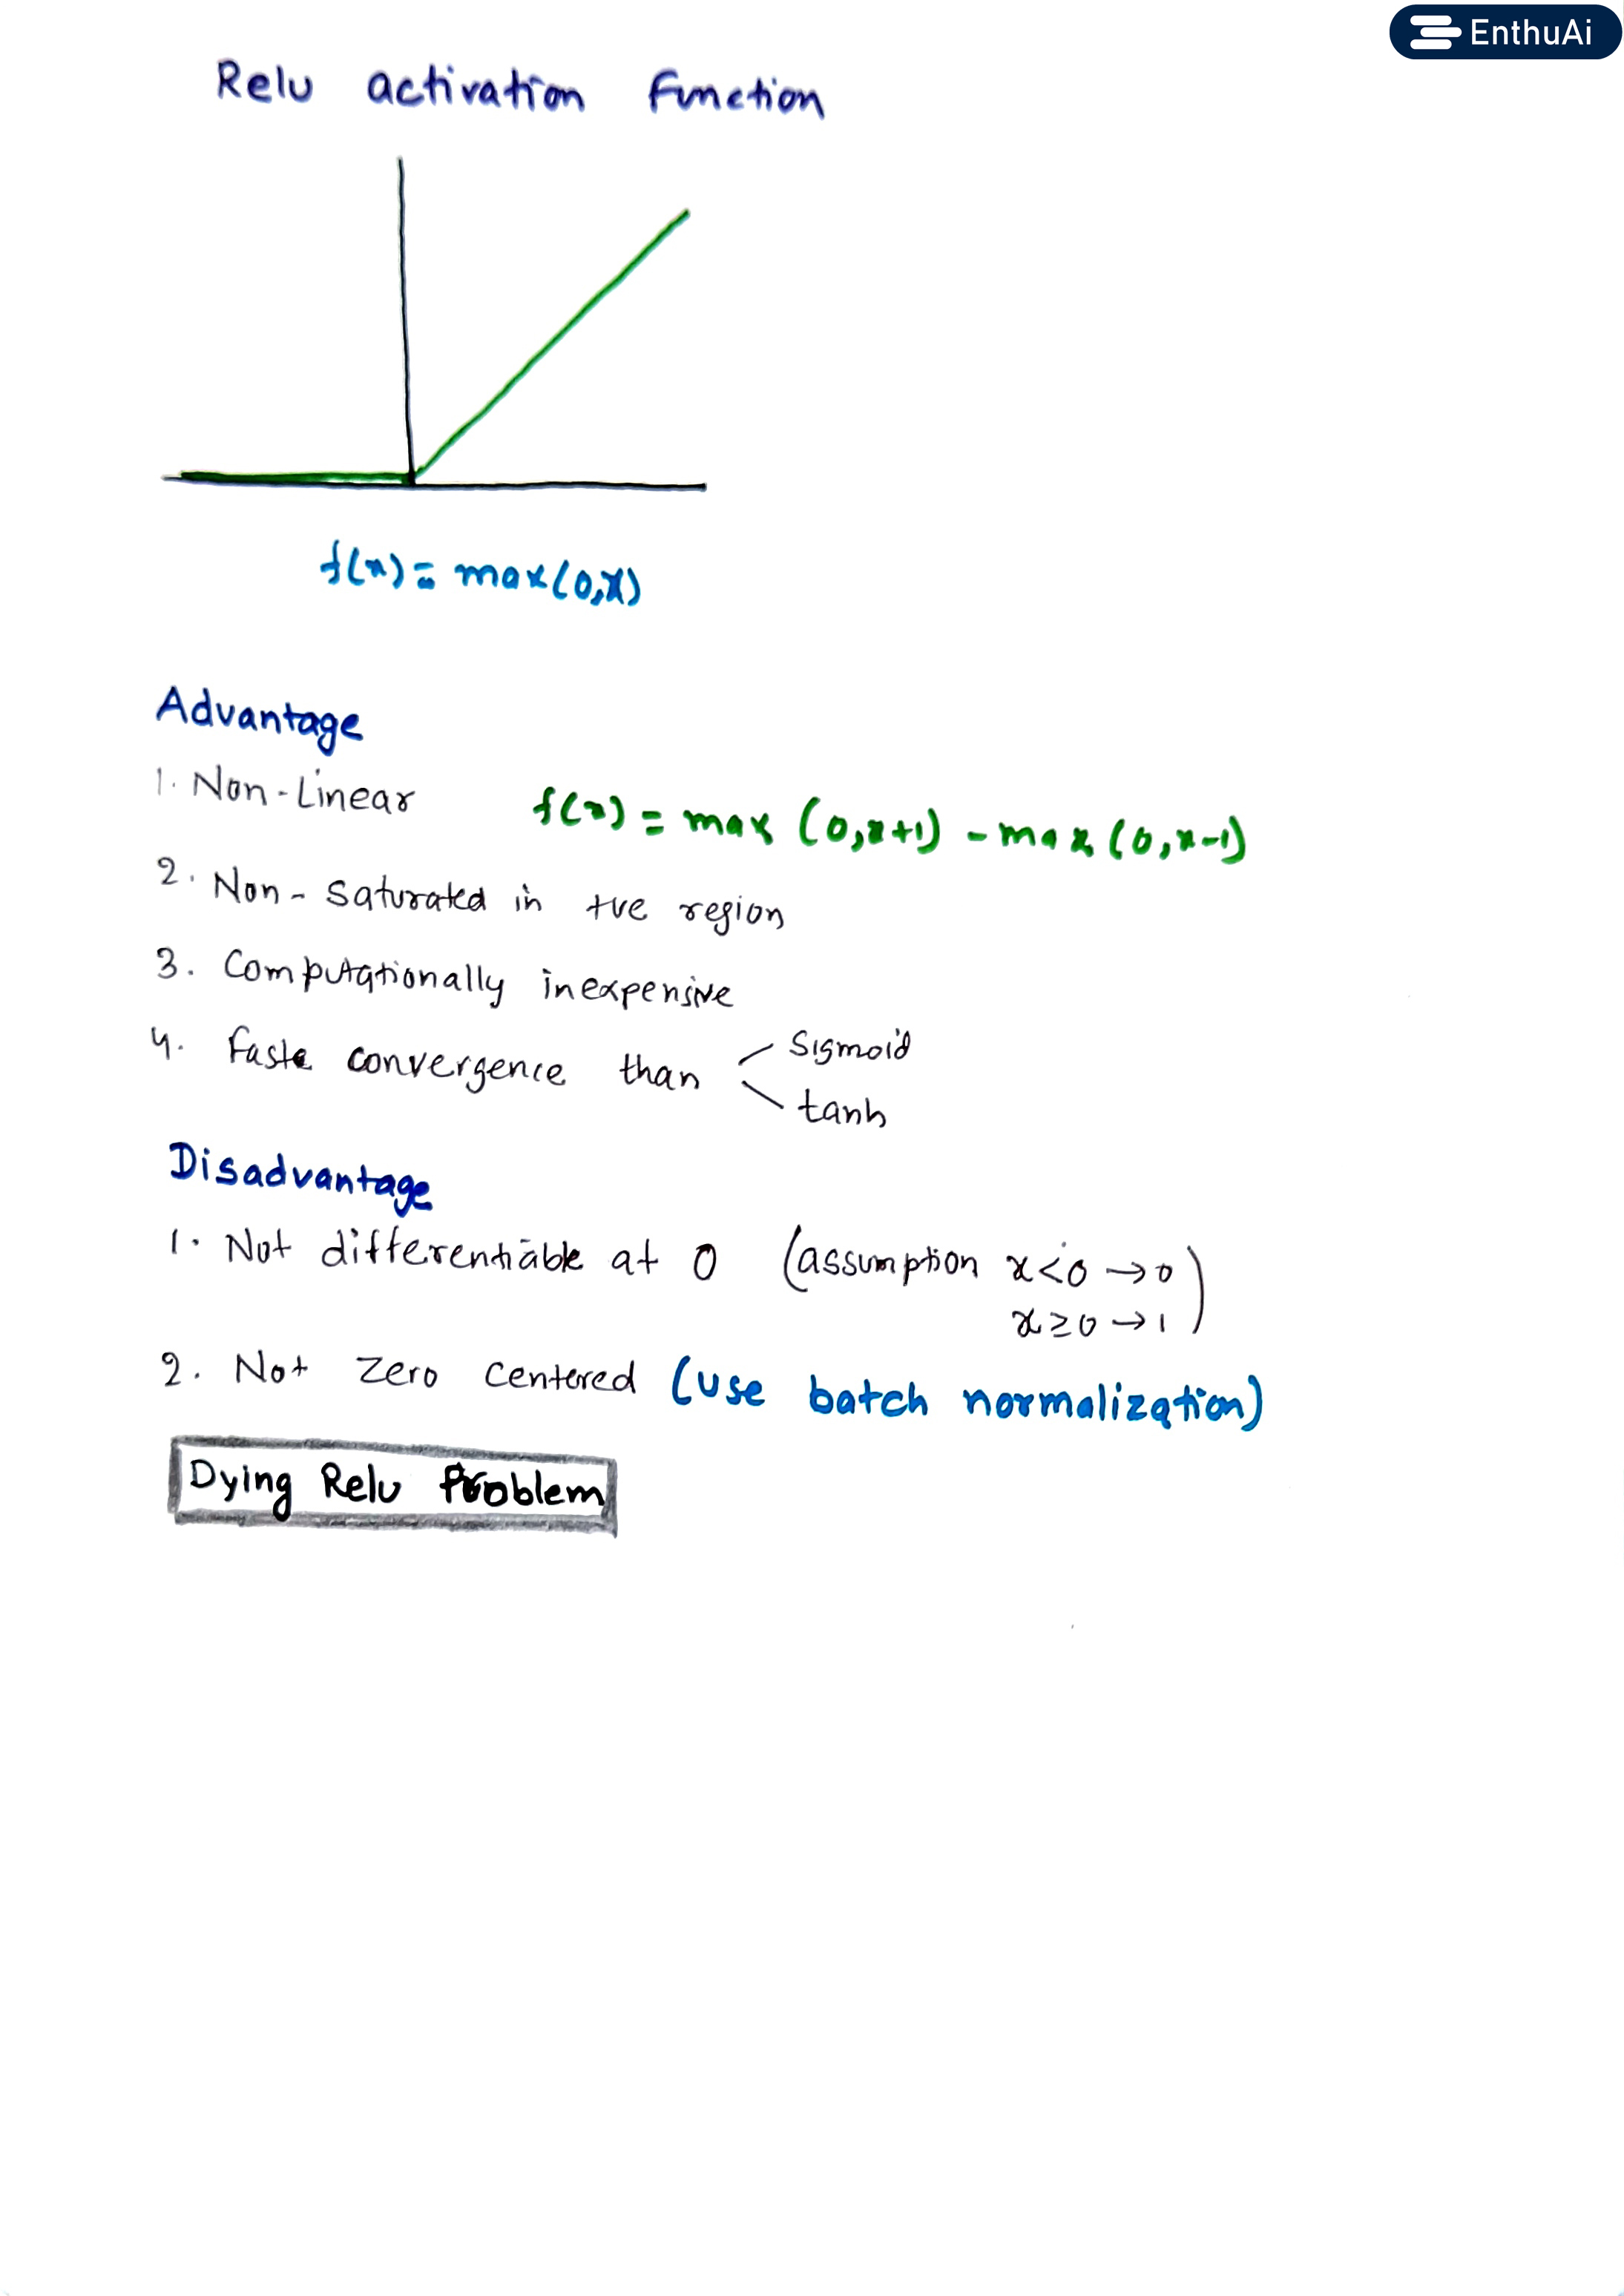 EnthuAi
Relu activation function
f(x) = max(0,x)
Advantage
1. Non-Linear f(x) = max (0,x+1) - max (0,x-1)
2. Non-saturated in +ve region
3. Computationally inexpensive
4. Faste convergence than Sigmoid
tanh
Disadvantage
1. Not differentiable at 0 (assumption x<0 → 0
x≥0 → 1)
2. Not Zero centered (use batch normalization)
Dying Relu Problem